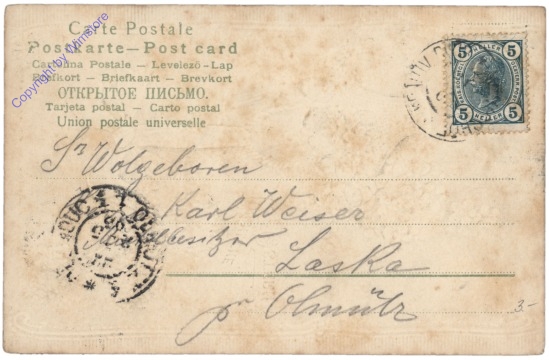 Carte Postale
Postkarte — Post card
Cartolina Postale — Levelező-Lap
Briefkort — Briefkaart — Brevkort
ОТКРЫТОЕ ПИСЬМО.
Tarjeta postal — Carto postal
Union postale universelle
Copyright by Wimstore
5 5
5 HELLER 5
Sr Wolgeboren
Karl Weiser
Hausbesitzer
Laska
pr Olmütz
3.-